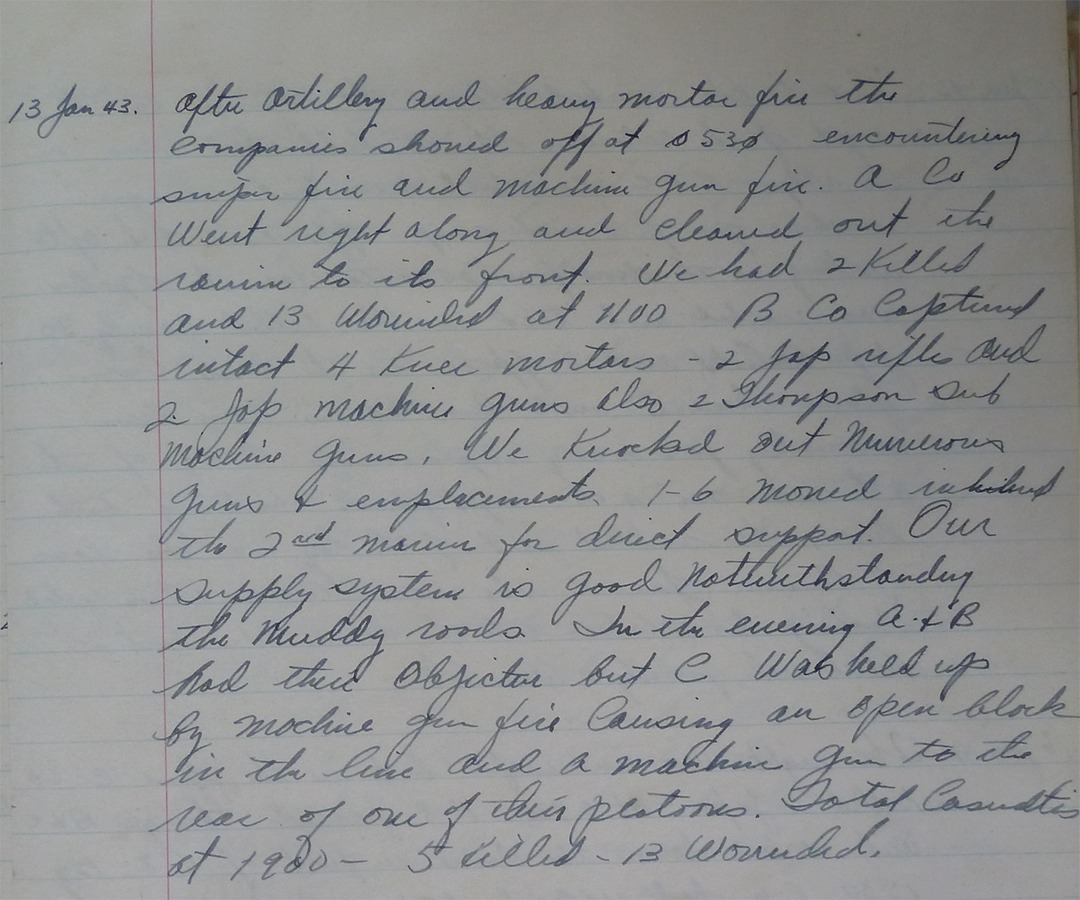 13 Jan 43. After Artillery and heavy mortar fire the
Companies shoved off at 0530 encountering
sniper fire and machine gun fire. A Co
Went right along and cleaned out the
ravine to its front. We had 2 Killed
and 13 Wounded at 1100 B Co Captured
intact 4 Knee mortars - 2 Jap rifles and
2 Jap machine guns also 2 Thompson Sub
Machine Guns. We Knocked out Numerous
guns & emplacements. 1-6 moved in behind
the 2nd Marines for direct support. Our
supply system is good Notwithstanding
the Muddy roads. In the evening A. & B
had their Objective but C Was held up
by machine gun fire Causing an open block
in the line and a machine gun to the
rear of one of their platoons. Total Casualties
at 1900 - 5 Killed - 13 Wounded.